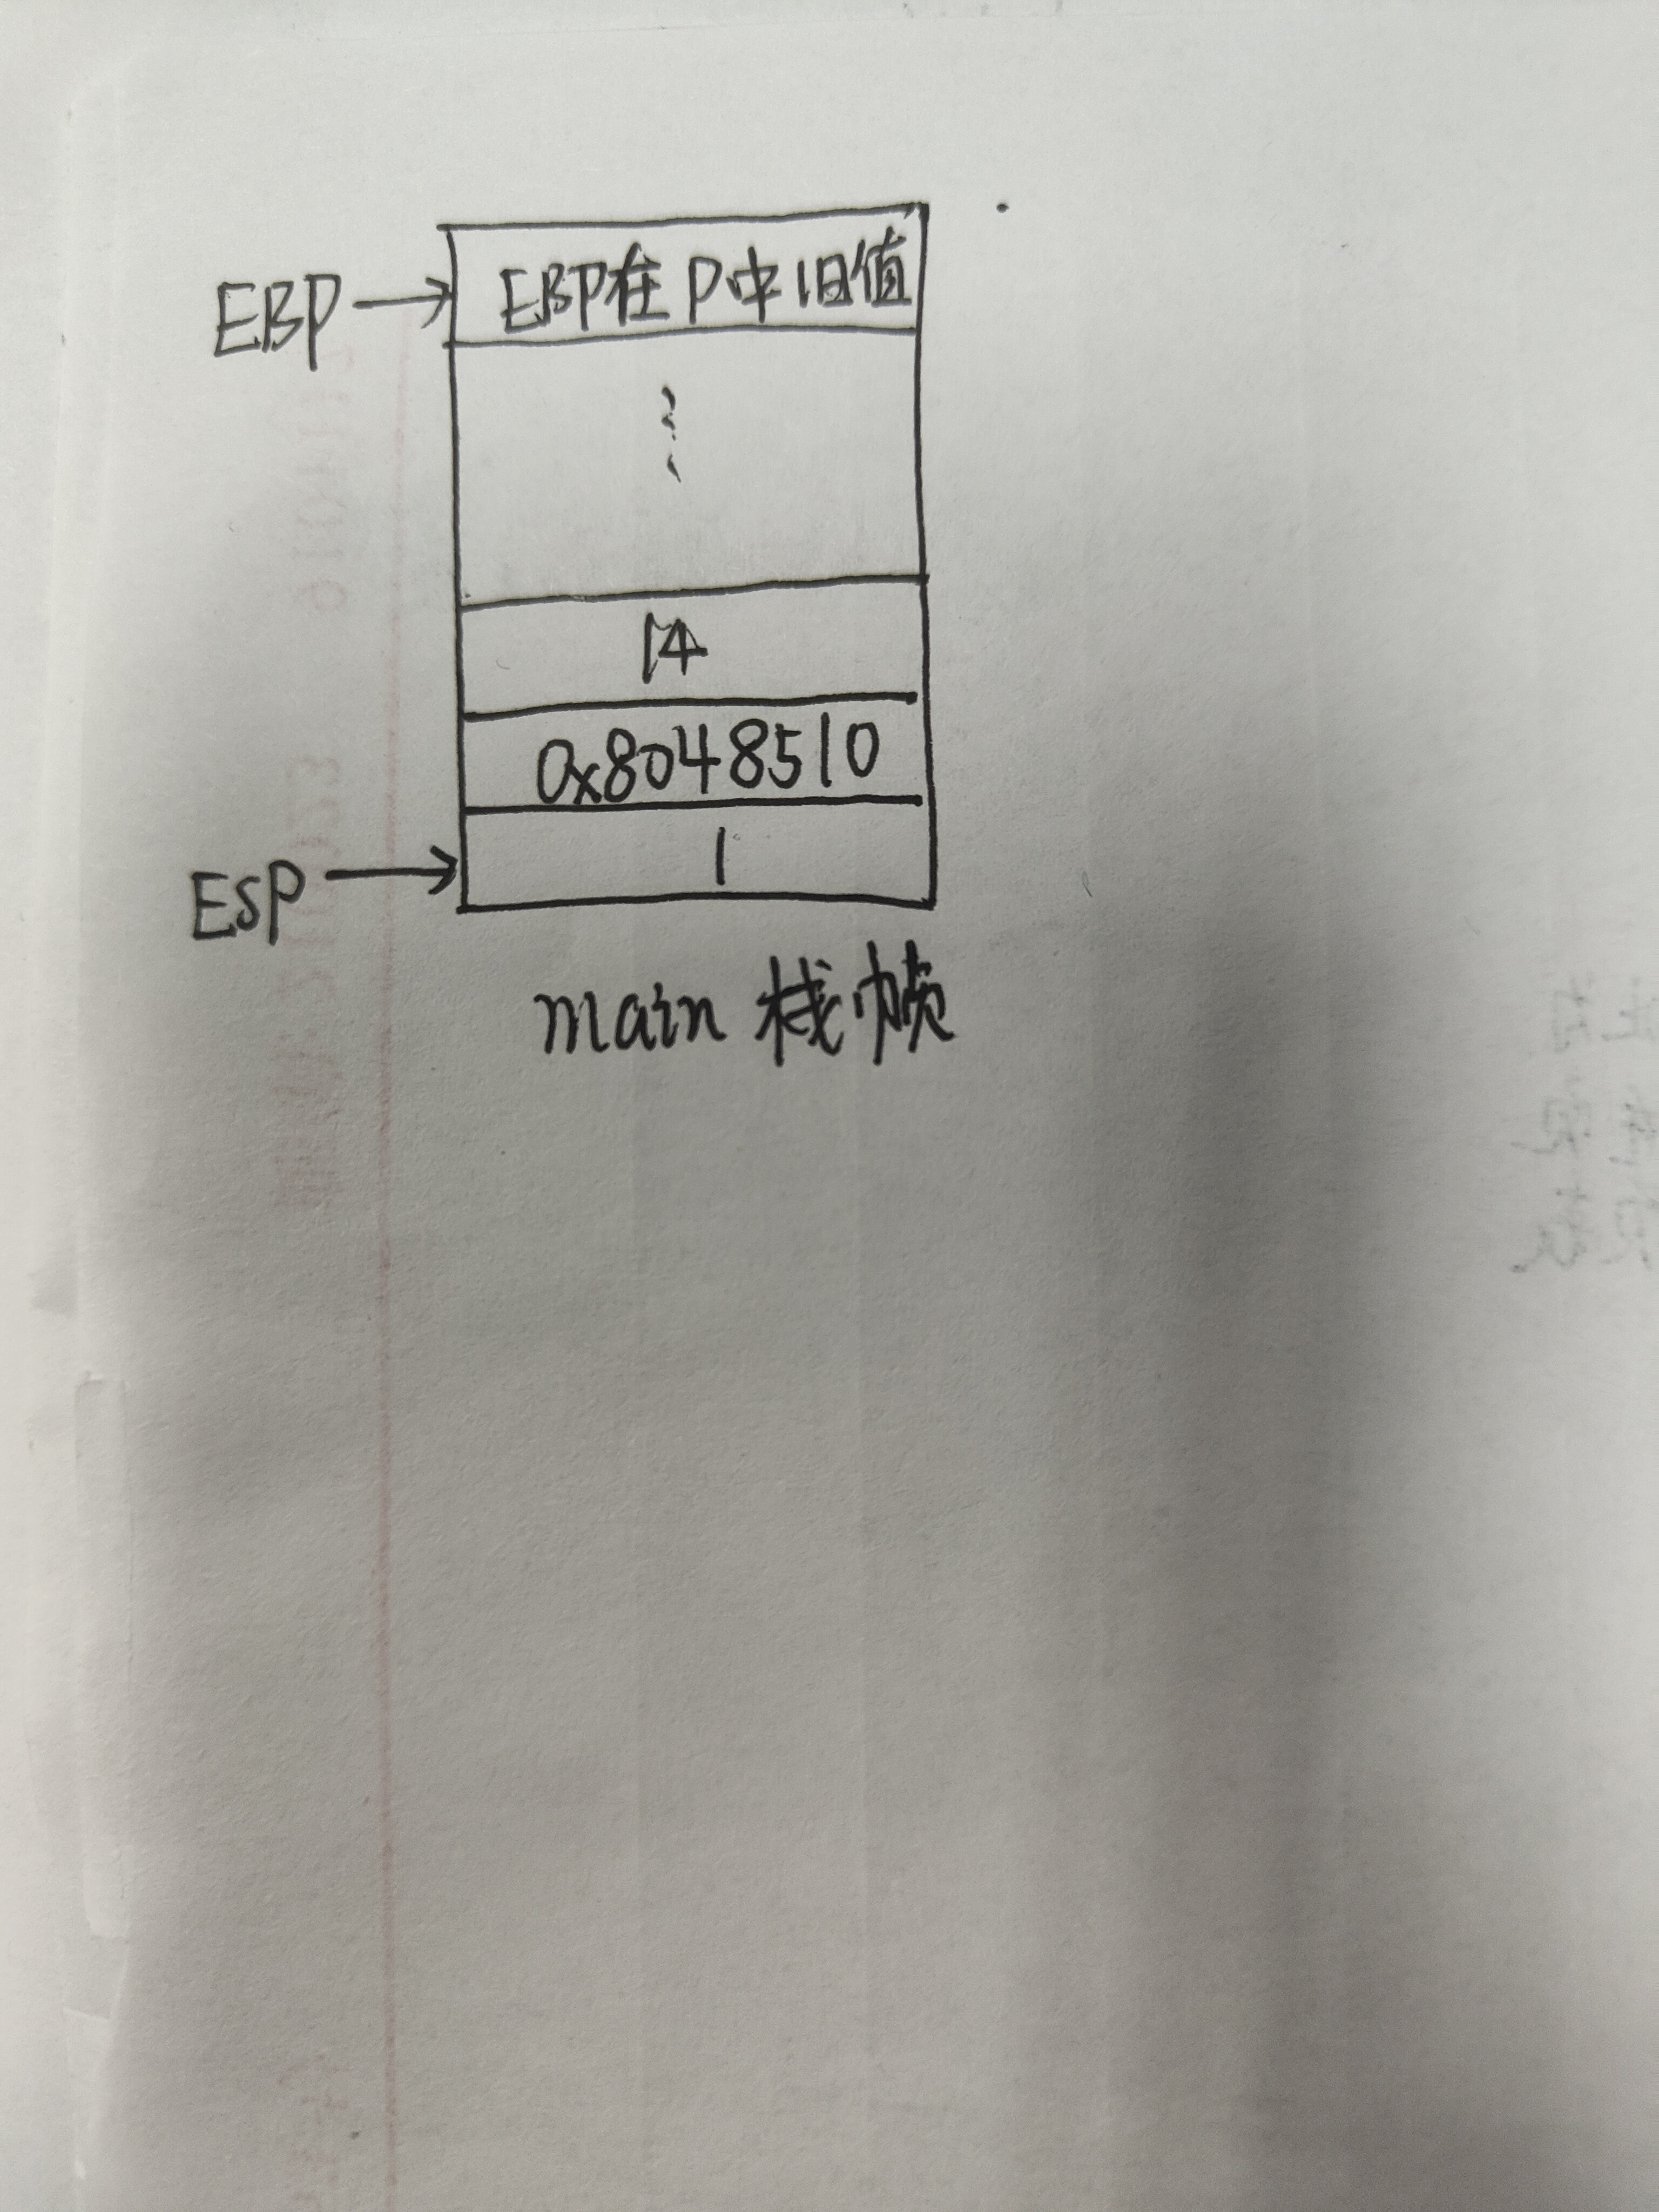 EBP → EBP在P中旧值
⋮
14
0x8048510
ESP → 1
main 栈帧